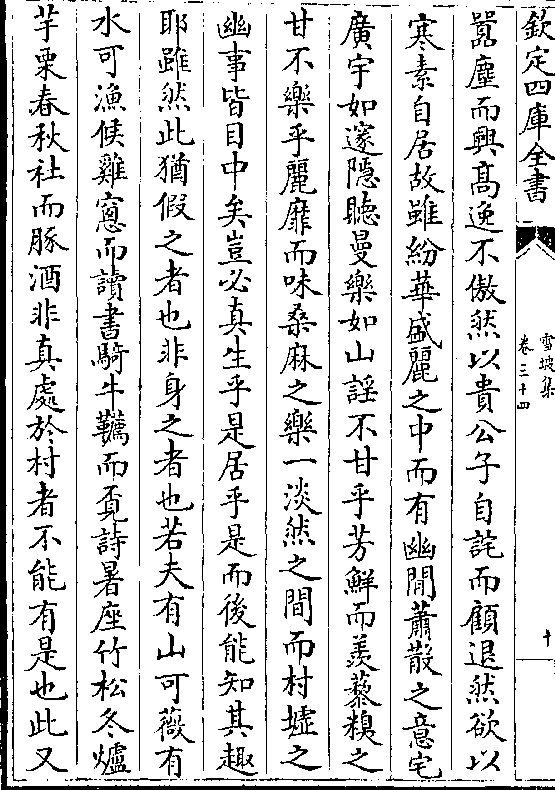 欽定四庫全書
雪坡集
卷三十四
十
囂塵而興高逸不傲然以貴公子自詫而顧退然欲以
寒素自居故雖紛華盛麗之中而有幽閒蕭散之意宅
廣宇如邃隱聽曼樂如山謡不甘乎芳鮮而羨藜糗之
甘不樂乎麗靡而味桑麻之樂一淡然之間而村墟之
幽事皆目中矣豈必真生乎是居乎是而後能知其趣
耶雖然此猶假之者也非身之者也若夫有山可薇有
水可漁候雞窓而讀書騎牛韉而覓詩暑座竹松冬爐
芋栗春秋社而豚酒非真處於村者不能有是也此又